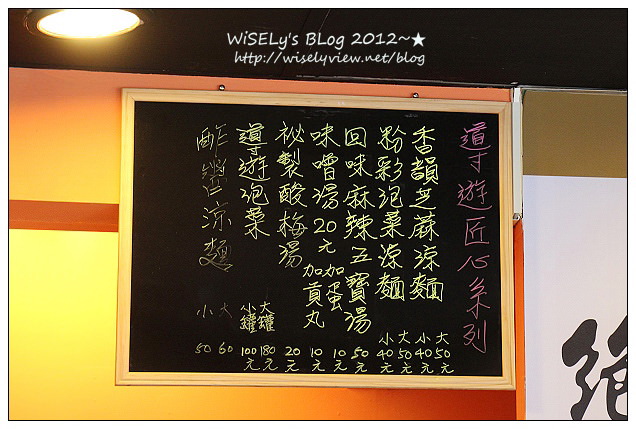 WiSELy's BLog 2012~★
http://wiselyview.net/blog
導遊匠心系列
香韻芝蔴涼麵 大50元 小40元
粉彩泡菜涼麵 大50元 小40元
回味麻辣五寶湯 50元
味噌湯20元 加蛋 10元 加貢丸 10元
祕製酸梅湯 20元
導遊泡菜 大罐180元 小罐100元
酢醬涼麵 大60 小50
絕